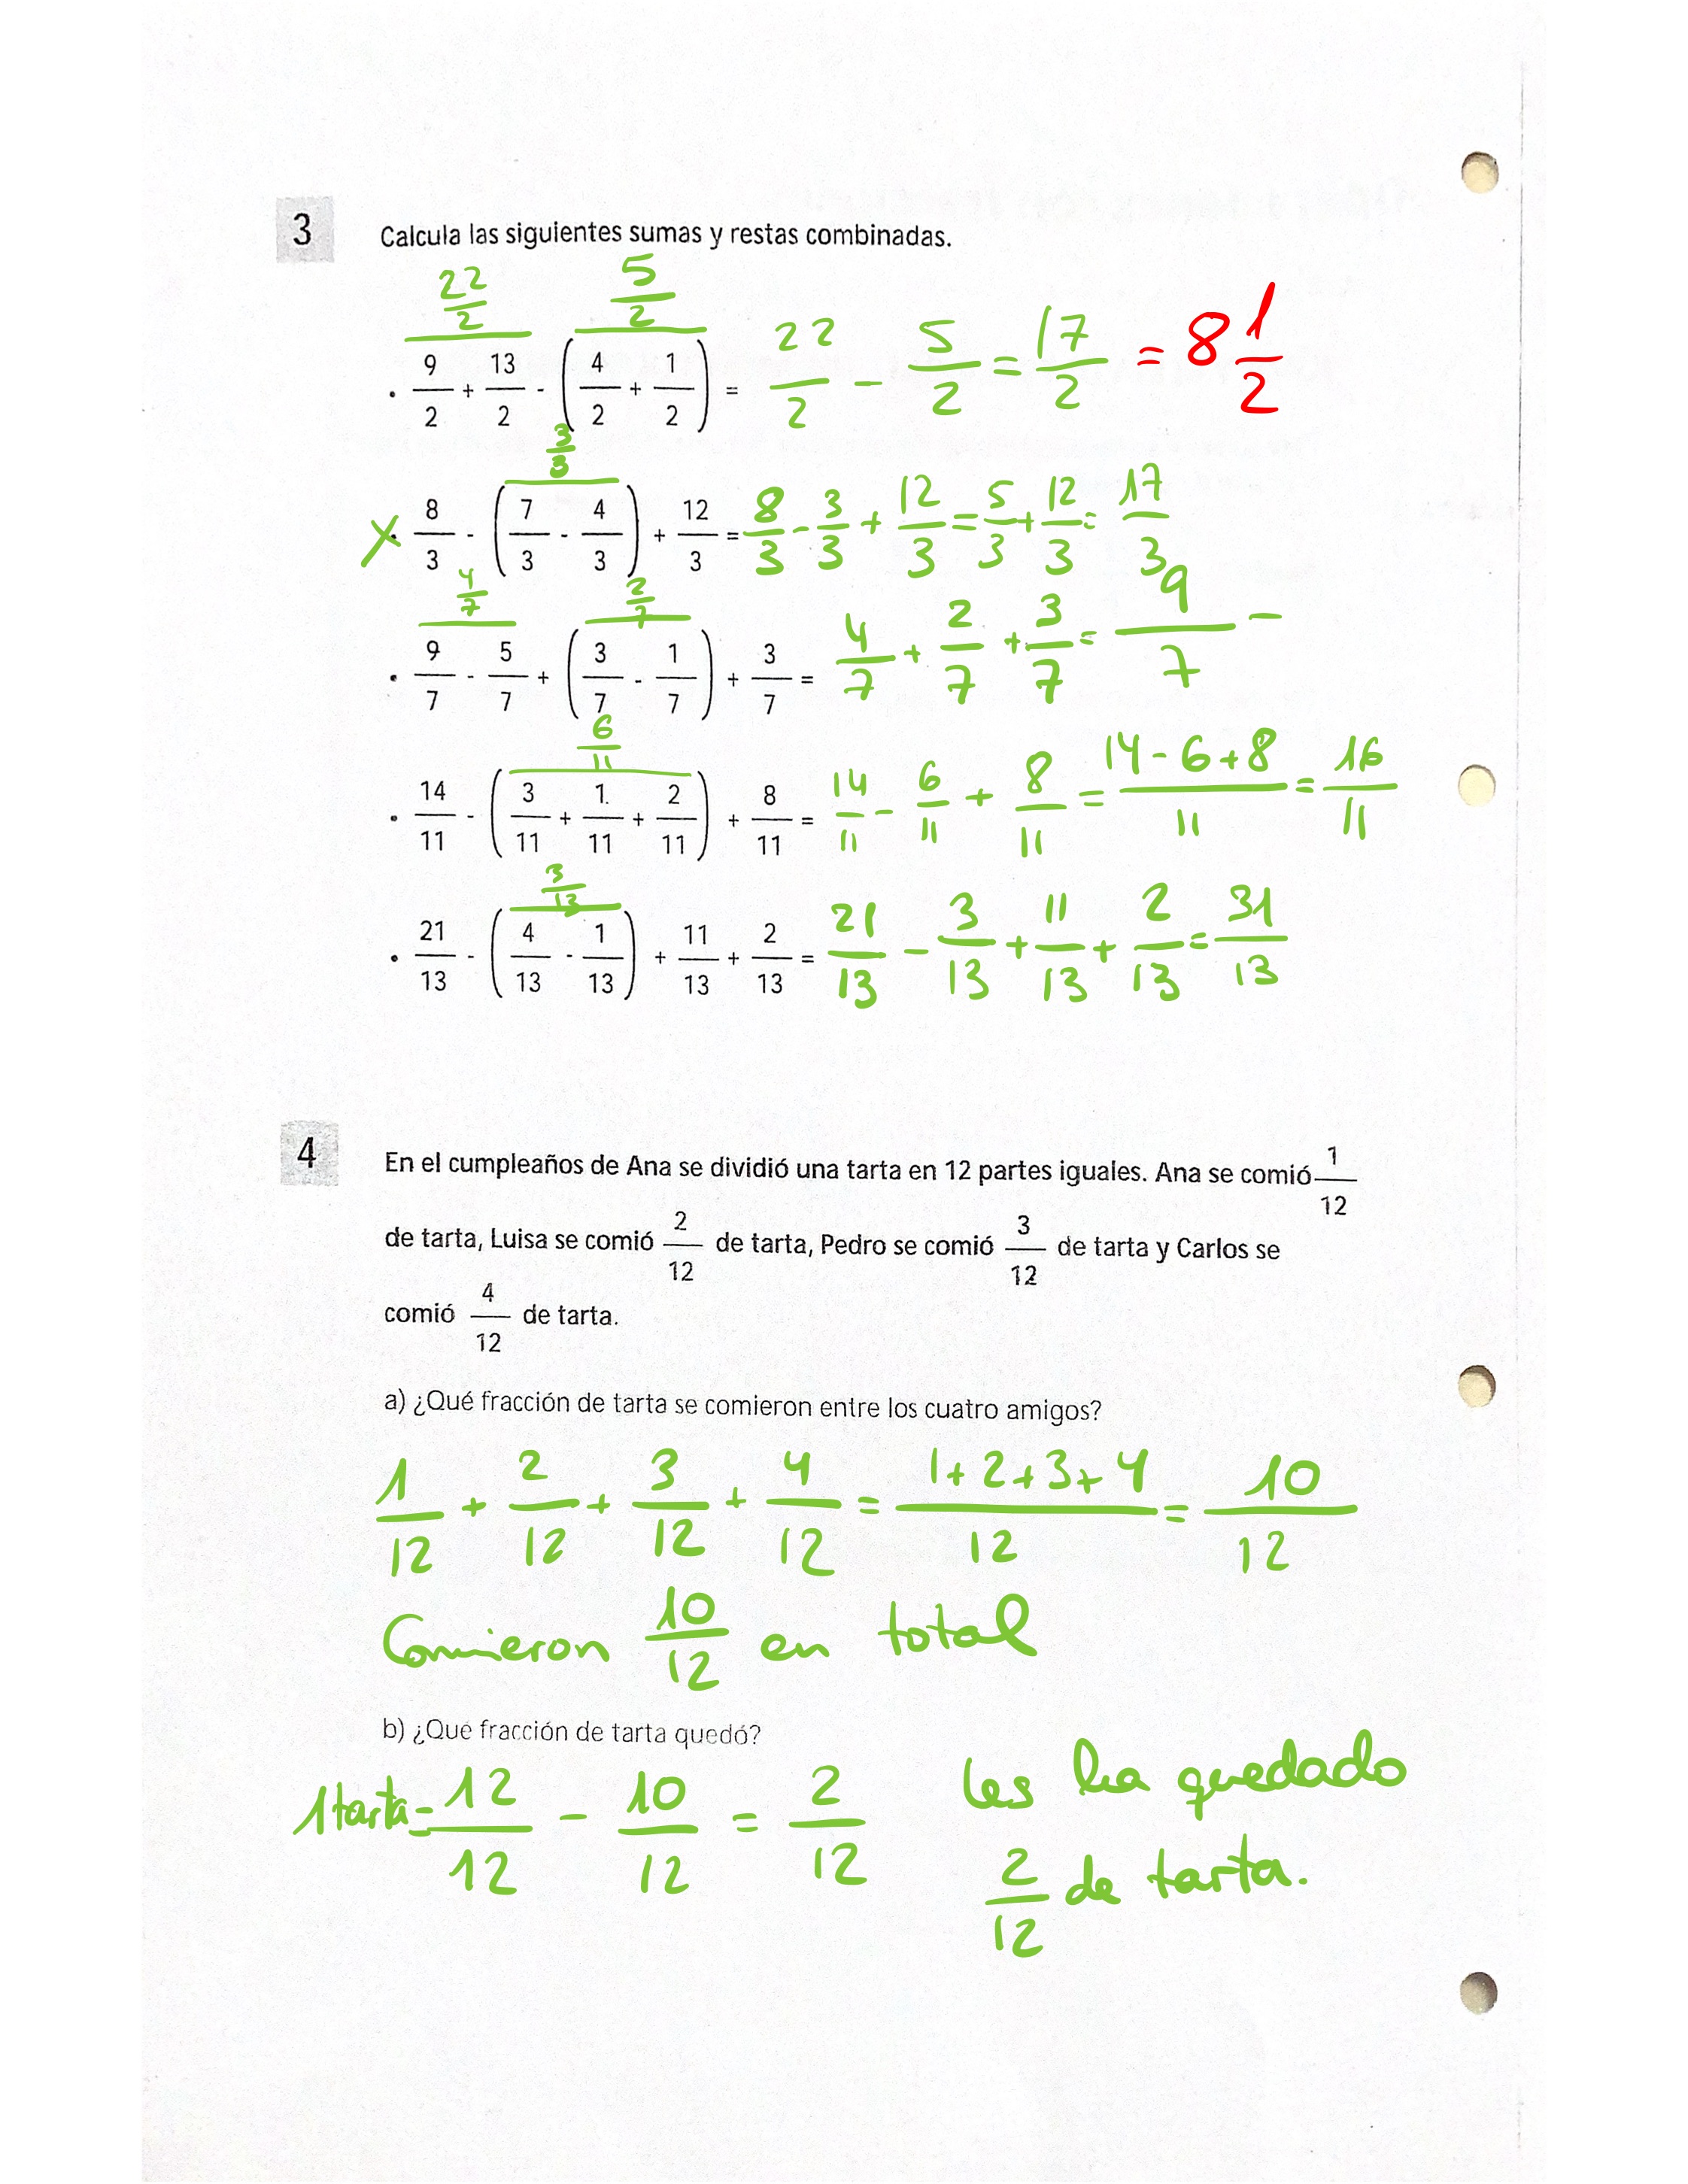 3 Calcula las siguientes sumas y restas combinadas.
22/2 5/2
· 9/2 + 13/2 - (4/2 + 1/2) = 22/2 - 5/2 = 17/2 = 8 1/2
3/3
X · 8/3 - (7/3 - 4/3) + 12/3 = 8/3 - 3/3 + 12/3 = 5/3 + 12/3 = 17/3
4/7 2/7
· 9/7 - 5/7 + (3/7 - 1/7) + 3/7 = 4/7 + 2/7 + 3/7 = 9/7 -
6/11
· 14/11 - (3/11 + 1/11 + 2/11) + 8/11 = 14/11 - 6/11 + 8/11 = 14-6+8/11 = 16/11
3/13
· 21/13 - (4/13 - 1/13) + 11/13 + 2/13 = 21/13 - 3/13 + 11/13 + 2/13 = 31/13
4 En el cumpleaños de Ana se dividió una tarta en 12 partes iguales. Ana se comió 1/12
de tarta, Luisa se comió 2/12 de tarta, Pedro se comió 3/12 de tarta y Carlos se
comió 4/12 de tarta.
a) ¿Qué fracción de tarta se comieron entre los cuatro amigos?
1/12 + 2/12 + 3/12 + 4/12 = 1+2+3+4/12 = 10/12
Comieron 10/12 en total
b) ¿Qué fracción de tarta quedó?
1 tarta = 12/12 - 10/12 = 2/12 les ha quedado
2/12 de tarta.